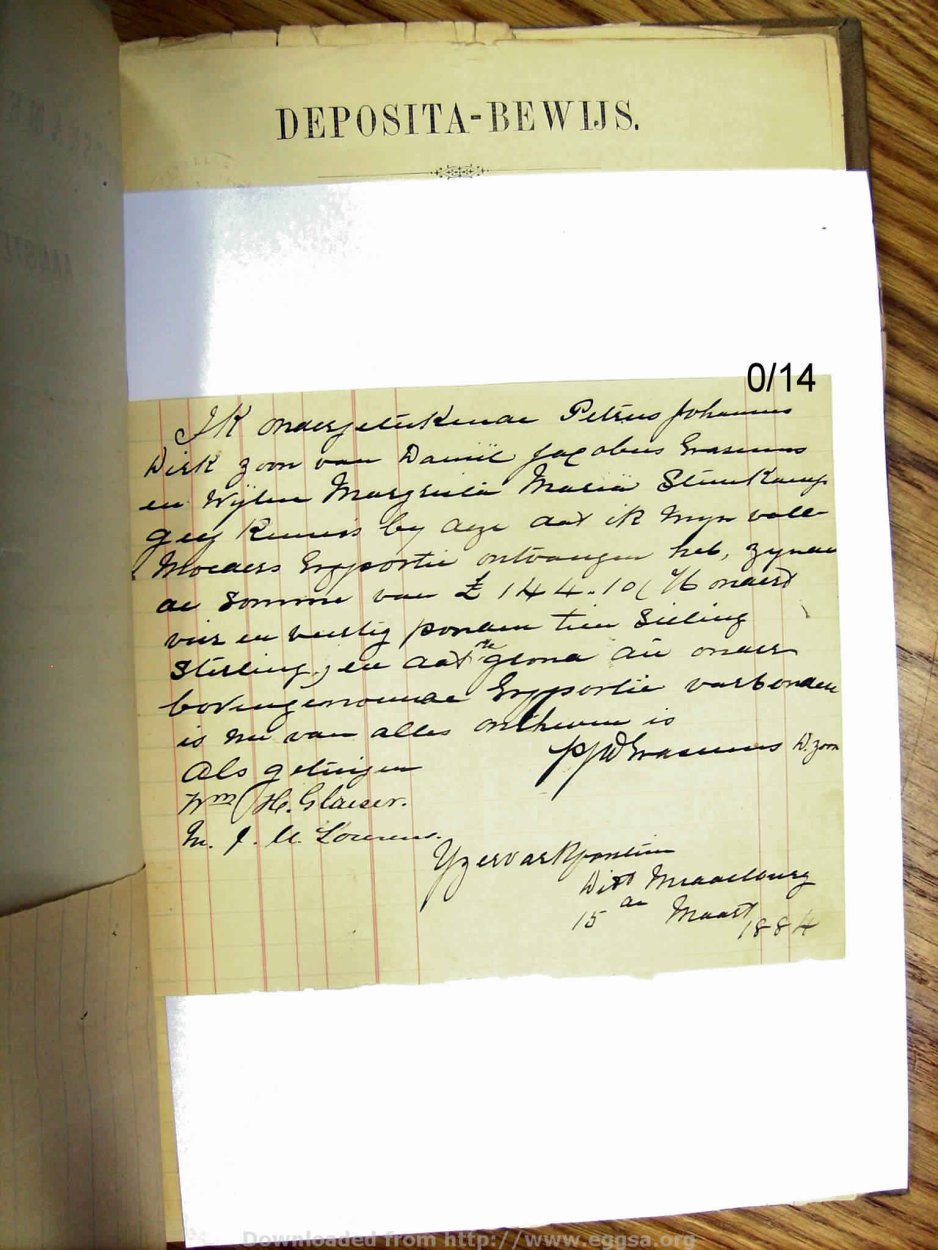 DEPOSITA-BEWIJS.
0/14
Ik ondergetekende Petrus Johannes
Dirk zoon van Daniël Jacobus Erasmus
en Wylen Margrieta Maria Steenkamp
geef kennis by deze dat ik myn volle
Moeders Erfportie ontvangen heb, zynde
de Somme van £ 144.10/ ondert
vier en veertig ponden tien Sieling
Sterling, en dat de grond die onder
bovengenoemde Erfportie verbonden
is nu van alles ontheven is
PJD Erasmus D. zoon
Als getuigen
Wm H. Glaeser.
Yzervarkfontein
Dist Middelburg
15 de Maart 1884
Downloaded from http://www.eggsa.org